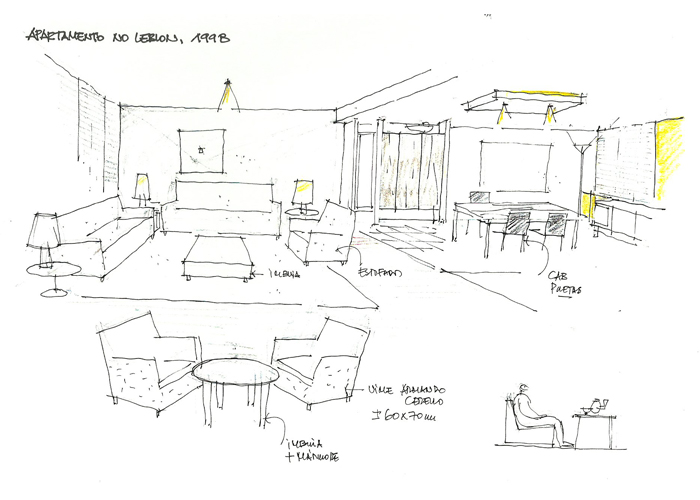 APARTAMENTO NO LEBLON, 1998
IMBUIA
ESTOFADO
CAB
PRETAS
VIME ARMANDO
CERELLO
± 60x70cm
IMBUIA
+ MÁRMORE